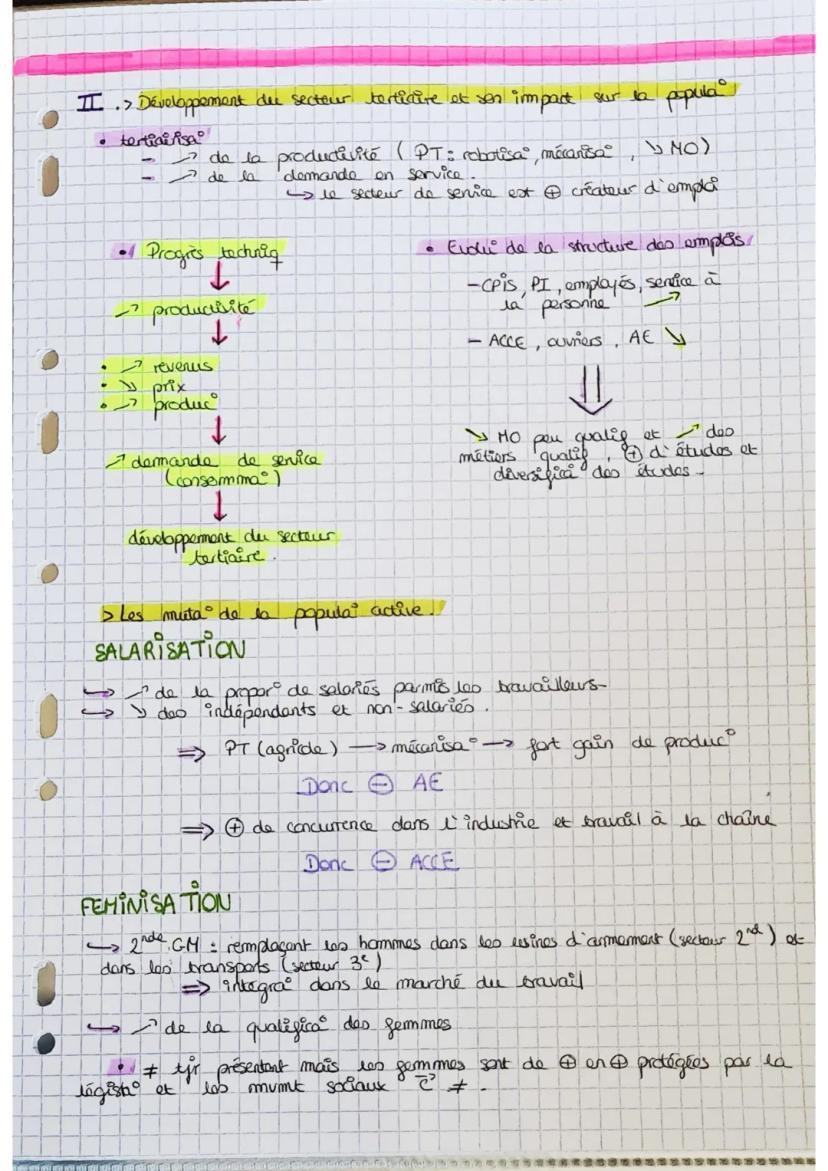 II .> Développement du secteur tertiaire et son impact sur la popula°
• tertiairisa°
- ↗ de la productivité ( PT : robotisa°, mécanisa° , ↘ MO)
- ↗ de la demande en service.
↳ le secteur de service est ⊕ créateur d'emploi
• Progrès techniq
↓
↗ productivité
↓
• ↗ revenus
• ↘ prix
• ↗ produc°
↓
↗ demande de service
(consomma°)
↓
développement du secteur
tertiaire.
• Evolu° de la structure des emplois
- CPIS, PI, employés, service à
la personne ↗
- ACCE, ouvriers, AE ↘
⇓
↘ MO peu qualif et ↗ des
métiers qualif, ⊕ d'études et
diversifica° des études.
> Les muta° de la popula° active.
SALARISATION
↳ ↗ de la propor° de salariés parmis les travailleurs
↳ ↘ des indépendants et non-salariés.
⇒ PT (agricole) → mécanisa° → fort gain de produc°
Donc ⊖ AE
⇒ ⊕ de concurrence dans l'industrie et travail à la chaîne
Donc ⊖ ACCE
FEMINISATION
↳ 2nde GM : remplaçent les hommes dans les usines d'armement (secteur 2nd) et
dans les transports (secteur 3e)
⇒ intégra° dans le marché du travail
↳ ↗ de la qualifica° des femmes
• ≠ tjr présentent mais les femmes sont de ⊕ en ⊕ protégées par la
législa° et les mvmt sociaux c̄ ≠.